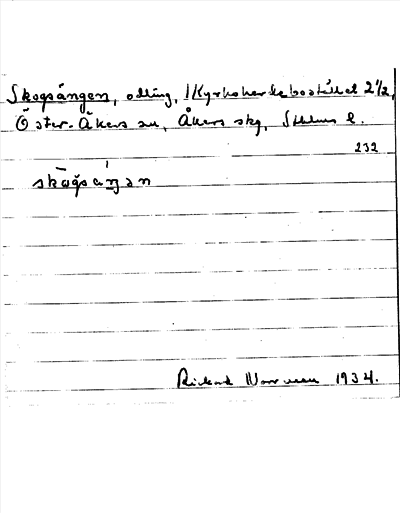 Skogsängen, odling, Kyrkoherdebostället 2 1/2,
Öster-Åkers sn, Åkers skg, Sthlms l.
232
skogsaŋan
Rickard 1934.